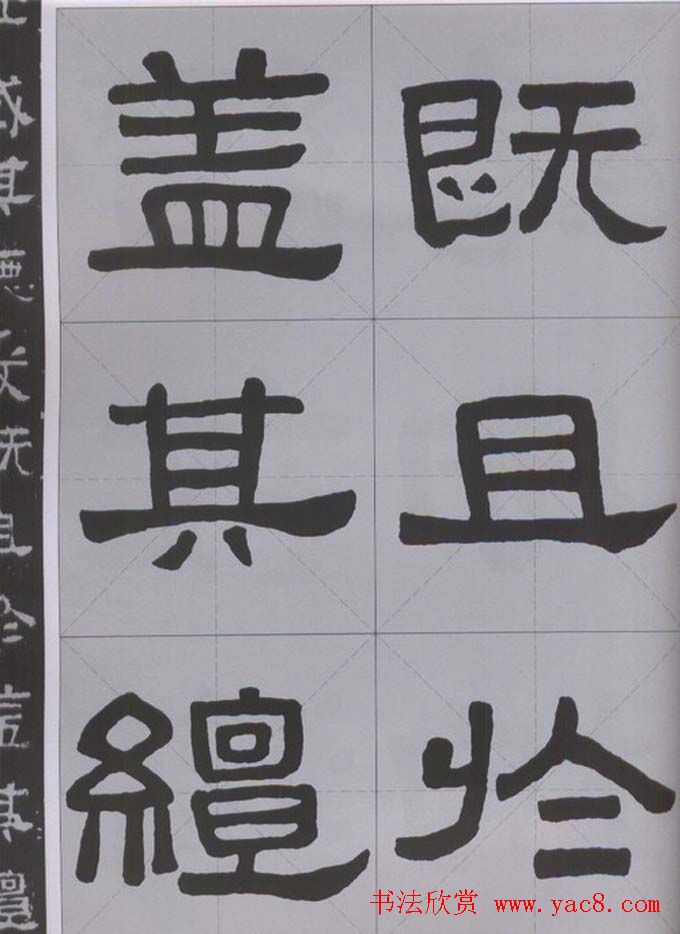 既且於
盖其繵
书法欣赏 www.yac8.com